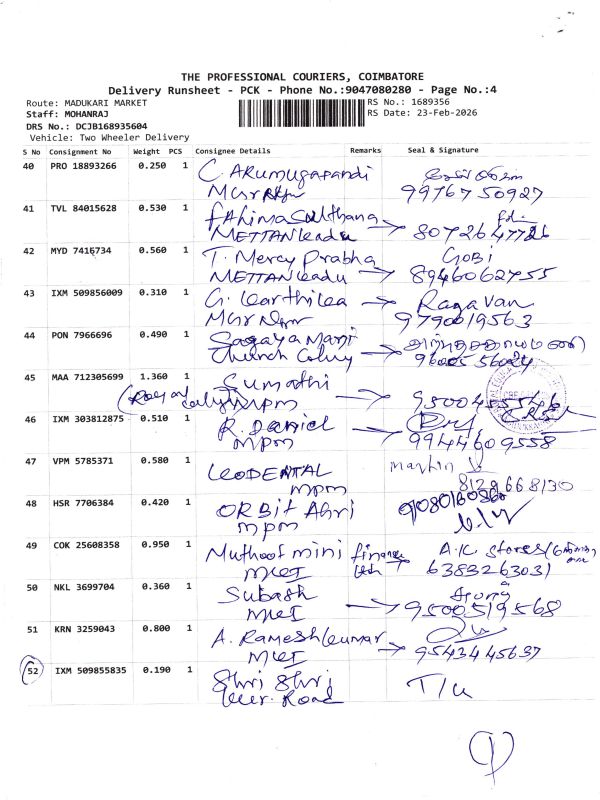 THE PROFESSIONAL COURIERS, COIMBATORE
Delivery Runsheet - PCK - Phone No.:9047080280 - Page No.:4
Route: MADUKARI MARKET
Staff: MOHANRAJ
DRS No.: DCJB168935604
Vehicle: Two Wheeler Delivery
RS No.: 1689356
RS Date: 23-Feb-2026
S No Consignment No Weight PCS Consignee Details Remarks Seal & Signature
40 PRO 18893266 0.250 1 C. Arumugapandi
9976750927
41 TVL 84015628 0.530 1 Fahima Sulthana
METTANKadu 8072647726
42 MYD 7416734 0.560 1 T. Mercy Prabha GOBI
METTANKadu 8946062755
43 IXM 509856009 0.310 1 G. Karthika Ragavan
9790019563
44 PON 7966696 0.490 1 Sagaya Mani
Church Colony 9600556024
45 MAA 712305699 1.360 1 Sumathi
(Royal mpm 9500455546
46 IXM 303812875 0.510 1 R. Daniel
mpm 9944609558
47 VPM 5785371 0.580 1 KODENTAL Martin
mpm 8129668130
48 HSR 7706384 0.420 1 ORBIT Agri
mpm
49 COK 25608358 0.950 1 Muthoot mini finance A.K stores
MKT 6383263031
50 NKL 3699704 0.360 1 Subash
MKT 9500519568
51 KRN 3259043 0.800 1 A. Rameshkumar
MKT 9543445637
52 IXM 509855835 0.190 1 Shri Shri
Road